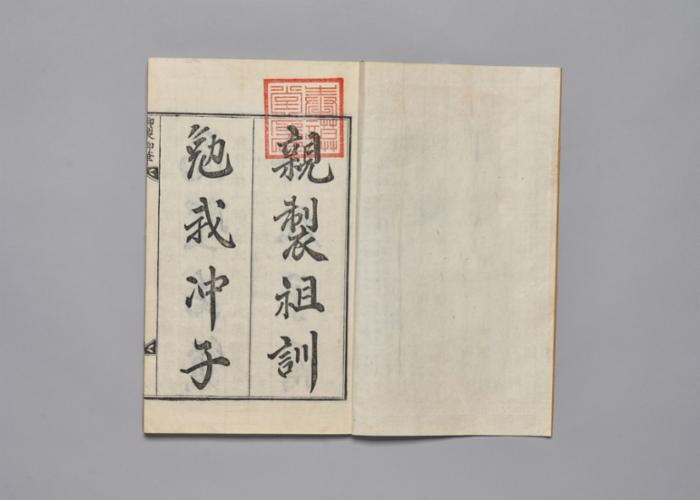 親製祖訓
勉我冲子